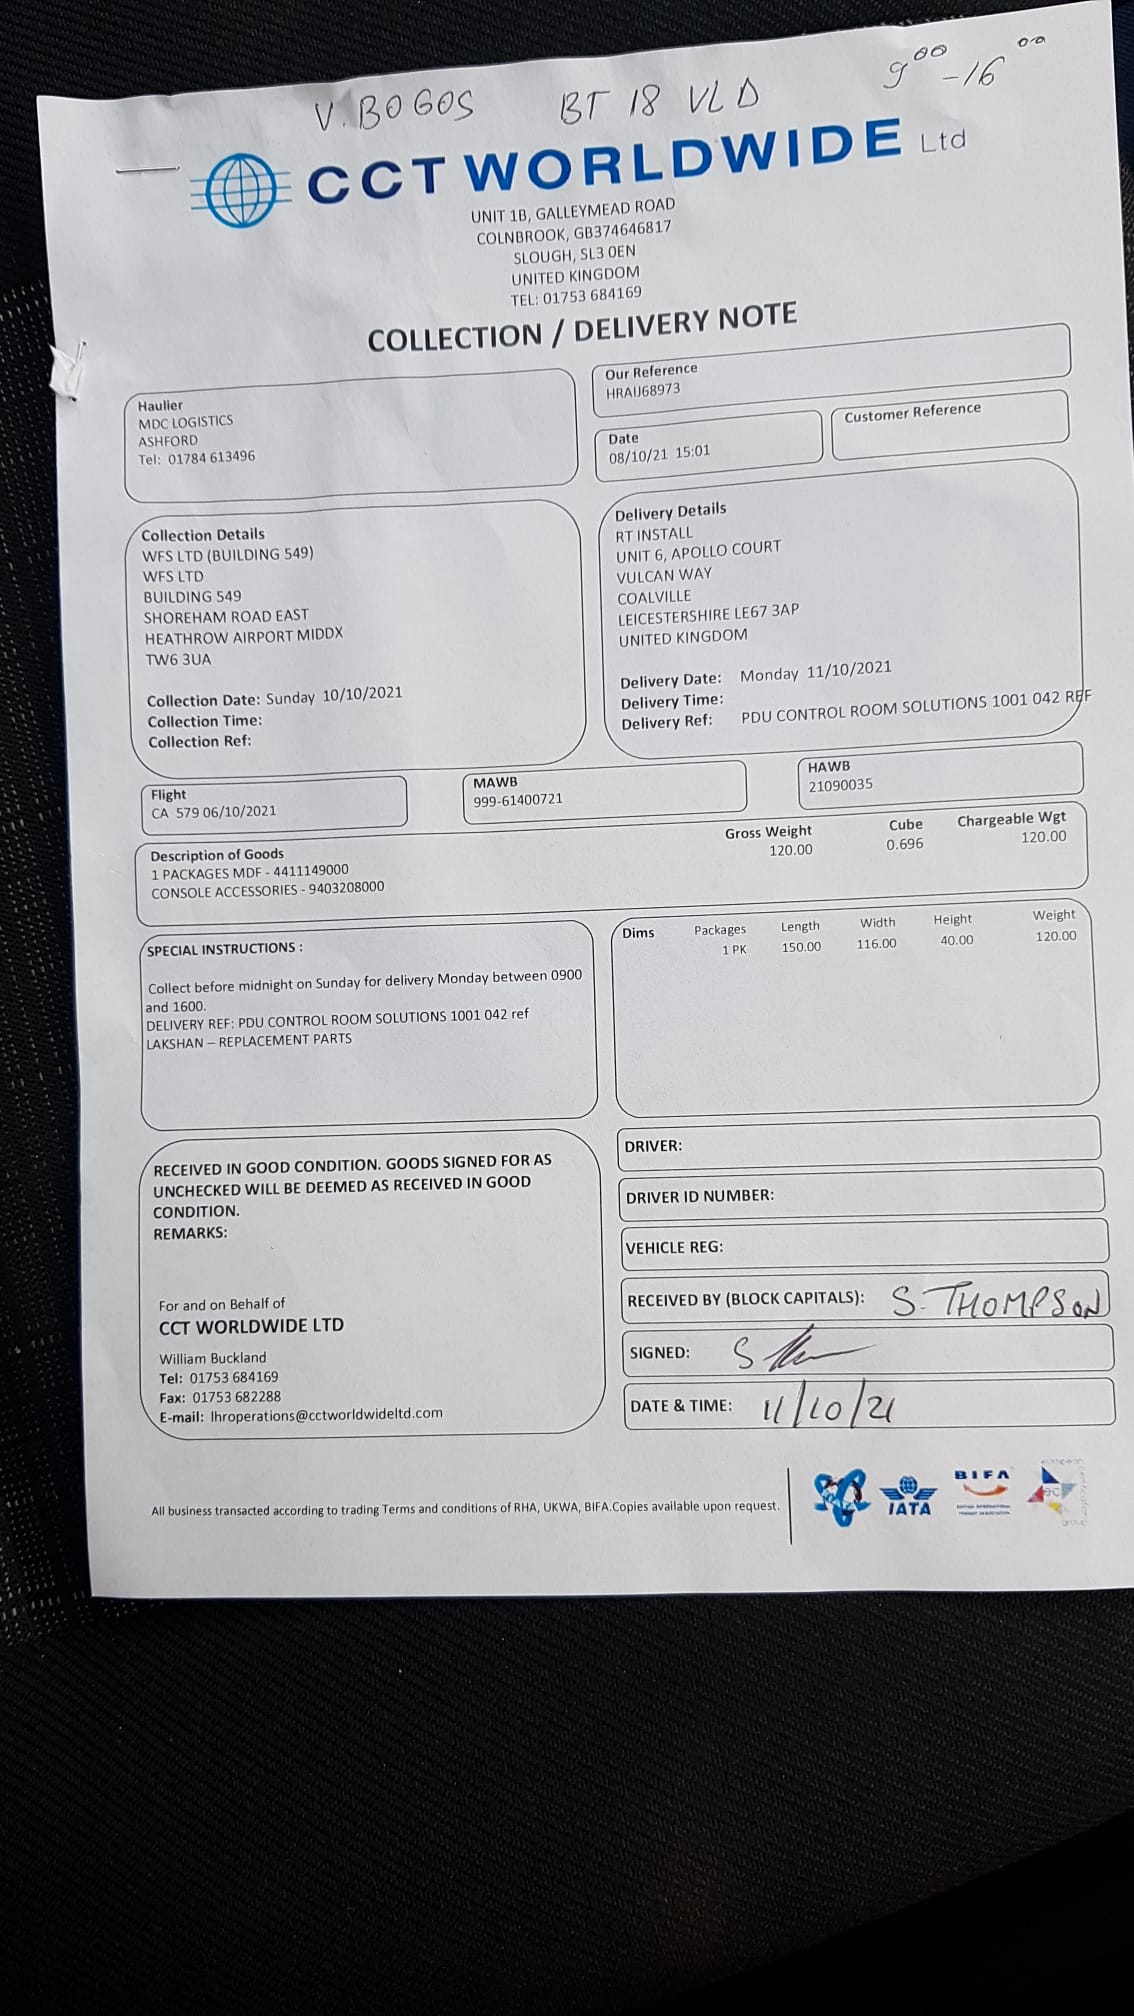 V. BOGOS BT 18 VLD 9⁰⁰-16⁰⁰
CCT WORLDWIDE Ltd
UNIT 1B, GALLEYMEAD ROAD
COLNBROOK, GB374646817
SLOUGH, SL3 0EN
UNITED KINGDOM
TEL: 01753 684169
COLLECTION / DELIVERY NOTE
Haulier
MDC LOGISTICS
ASHFORD
Tel: 01784 613496
Our Reference
HRAIJ68973
Date
08/10/21 15:01
Customer Reference
Collection Details
WFS LTD (BUILDING 549)
WFS LTD
BUILDING 549
SHOREHAM ROAD EAST
HEATHROW AIRPORT MIDDX
TW6 3UA
Collection Date: Sunday 10/10/2021
Collection Time:
Collection Ref:
Delivery Details
RT INSTALL
UNIT 6, APOLLO COURT
VULCAN WAY
COALVILLE
LEICESTERSHIRE LE67 3AP
UNITED KINGDOM
Delivery Date: Monday 11/10/2021
Delivery Time:
Delivery Ref: PDU CONTROL ROOM SOLUTIONS 1001 042 REF
Flight
CA 579 06/10/2021
MAWB
999-61400721
HAWB
21090035
Description of Goods
1 PACKAGES MDF - 4411149000
CONSOLE ACCESSORIES - 9403208000
Gross Weight Cube Chargeable Wgt
120.00 0.696 120.00
SPECIAL INSTRUCTIONS :
Collect before midnight on Sunday for delivery Monday between 0900
and 1600.
DELIVERY REF: PDU CONTROL ROOM SOLUTIONS 1001 042 ref
LAKSHAN – REPLACEMENT PARTS
Dims Packages Length Width Height Weight
1 PK 150.00 116.00 40.00 120.00
RECEIVED IN GOOD CONDITION. GOODS SIGNED FOR AS
UNCHECKED WILL BE DEEMED AS RECEIVED IN GOOD
CONDITION.
REMARKS:
For and on Behalf of
CCT WORLDWIDE LTD
William Buckland
Tel: 01753 684169
Fax: 01753 682288
E-mail: lhroperations@cctworldwideltd.com
DRIVER:
DRIVER ID NUMBER:
VEHICLE REG:
RECEIVED BY (BLOCK CAPITALS): S. THOMPSON
SIGNED:
DATE & TIME: 11/10/21
All business transacted according to trading Terms and conditions of RHA, UKWA, BIFA.Copies available upon request.
IATA
BIFA